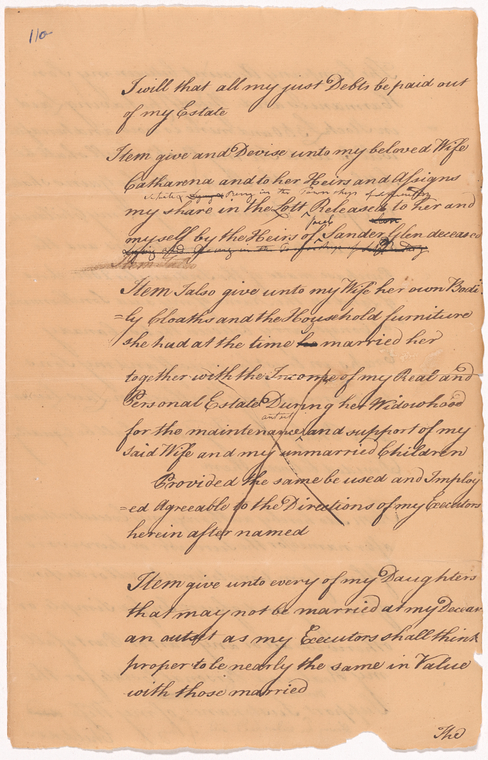 110
I will that all my just Debts be paid out
of my Estate
Item give and Devise unto my beloved Wife
Catharena and to her Heirs and Assigns
lying in the Township of
my share in the Lott Released to her and
Jacob
myself by the Heirs of Sander Glen deceased
Item I also give unto my Wife her own Bodi
=ly Cloaths and the Household furniture
she had at the time married her
together with the Income of my Real and
Personal Estate During her Widowhood
for the maintenance and support of my
said Wife and my unmarried Children
Provided the same be used and Imploy
=ed Agreeable to the Directions of my Executors
herein after named
Item give unto every of my Daughters
that may not be married at my Deceas
an outset as my Executors shall think
proper to be nearly the same in Value
with those married
The